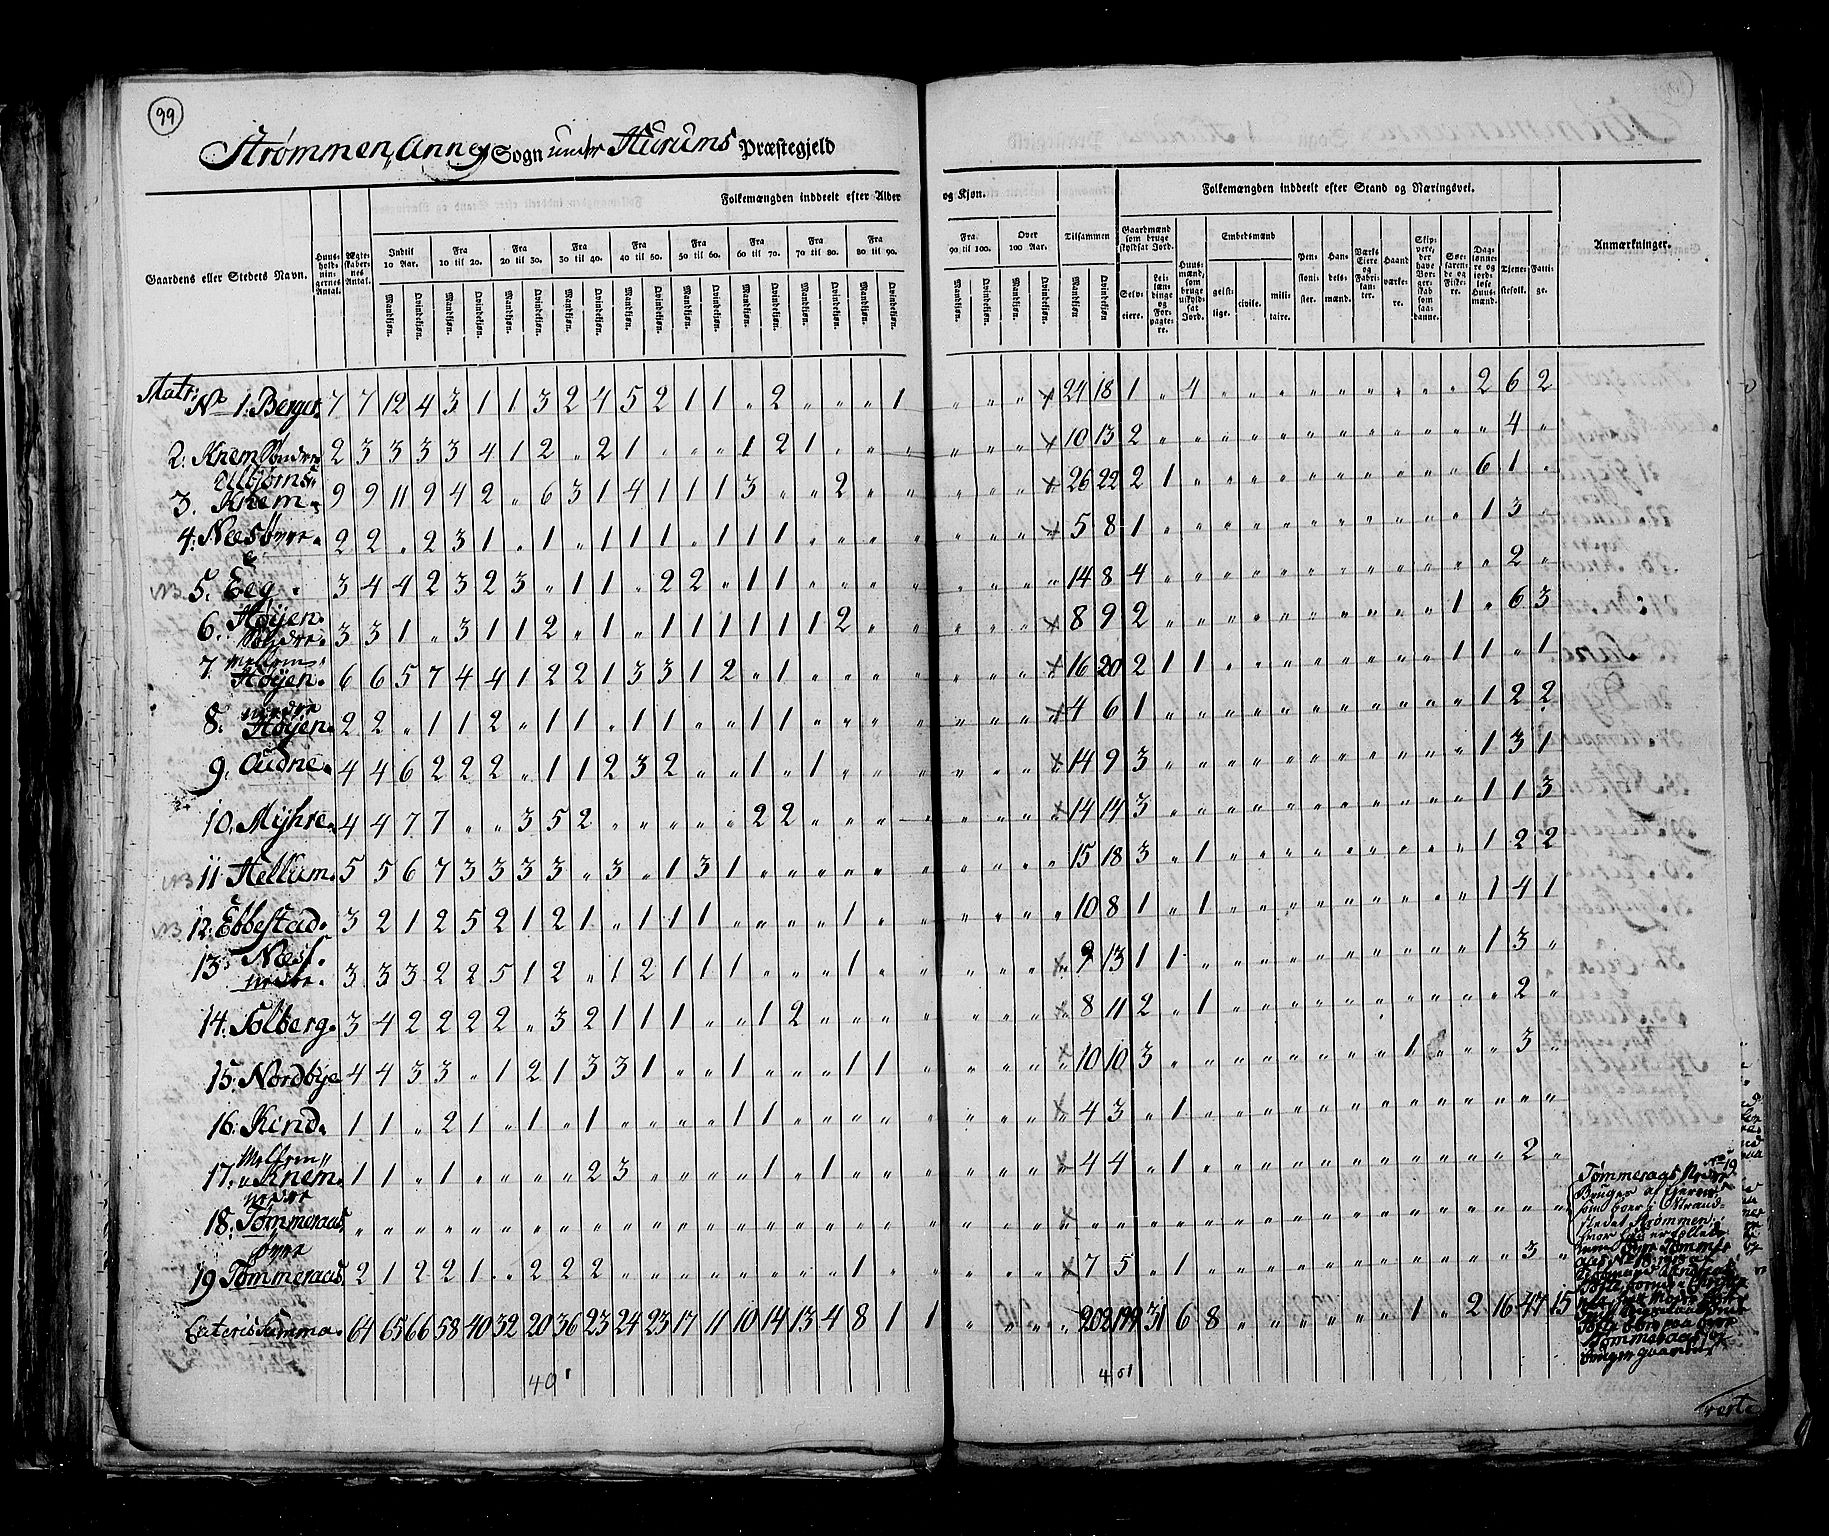 99
Strømmen, Annex Sogn under Hurums Præstegjeld
Gaardens eller Stedets Navn.
Huus-holdnin-gernes Antal.
Ægte-skaber-nes Antal.
Folkemængden inddeelt efter Alder
og Kjøn.
Indtil 10 Aar.
Fra 10 til 20.
Fra 20 til 30.
Fra 30 til 40.
Fra 40 til 50.
Fra 50 til 60.
Fra 60 til 70.
Fra 70 til 80.
Fra 80 til 90.
Fra 90 til 100.
Over 100 Aar.
Tilsammen
Mandkjøn. Qvindekjøn.
Folkemængden inddeelt efter Stand og Næringsvei.
Gaardmænd som bruge skyldsat Jord.
Selv-eiere.
Lei-læn-dinge og For-pagte-re.
Huus-mænd, som bruge uskyld-sat Jord.
Embedsmænd
geist-lige.
civile.
mili-taire.
Pen-sioni-ster.
Han-dels-mænd.
Værks Eiere og Fabri-kan-ter.
Haand-værke-re.
Skip-pere, der have Bor-gerskab som saa-danne.
Søe-farende og Fiske-re.
Dag-lønne-re og jord-løse Huus-mænd.
Tjene-stefolk.
Fatti-ge.
Anmærkninger.
Matr:
No 1. Berger. 7 7 12 4 3 1 1 3 2 4 5 2 1 1 " 2 " " " 1 " " " " 24 18 1 " 4 " " " " " " " " " 2 6 2
2. Knem Søndre 2 3 3 3 3 3 4 1 2 " 2 1 " " " 1 2 1 " " " " " " 10 13 2 " " " " " " " " " " " " 4 "
3. Knem. 9 9 11 9 4 2 " 6 3 1 4 1 1 1 3 " " 2 " " " " " " 26 22 2 1 " " " " " " " " " " 6 1 "
4. Næs øvre. 2 2 " 2 3 1 " 1 " 1 1 1 " 1 1 1 " " " " " " " " 5 8 1 " " " " " " " " " " " 1 3 "
NB 5. Eeg. 3 4 4 2 3 2 3 " 1 1 " 2 2 " 1 1 " " " " " " " " 14 8 4 " " " " " " " " " " " " 2 "
6. Høyen Søndre. 3 3 1 " 3 1 1 2 " 1 " 1 1 1 1 1 1 2 " " " " " " 8 9 2 " " " " " " " " " " 1 " 6 3
7. Mellem Høyen. 6 6 5 7 4 4 1 2 2 1 3 3 1 2 " 1 " " " " " " " " 16 20 2 1 1 " " " " " " " " 1 1 " 1
8. nedre Høyen. 2 2 " 1 1 2 " 1 1 " 1 1 " " 1 1 " " " " " " " " 4 6 1 " " " " " " " " " " " 1 2 2
9. Audne. 4 4 6 2 2 2 " 1 1 2 3 2 " " 1 " 1 " " " " " " " 14 9 3 " " " " " " " " " " " 1 3 1
10. Mÿhre. 4 4 7 7 " " 3 5 2 " " " " " 2 2 " " " " " " " " 14 14 3 " " " " " " " " " " " 1 1 3
NB 11. Hellum. 5 5 6 7 3 3 3 3 " 3 " 1 3 1 " " " " " " " " " " 15 18 3 " 1 " " " " " " " " " 1 2 2
NB 12. Ebbestad. 3 2 1 2 5 2 1 2 1 " 1 1 1 " " " 1 " " " " " " 10 8 1 " 1 " " " " " " " " " 1 4 1
13. Næss nedre. 3 3 3 2 2 5 1 2 " 1 2 1 1 1 " " " 1 " " " " " " 9 13 1 1 " " " " " " " " " " 1 3 "
14. Solberg. 3 4 2 2 2 2 " 3 2 1 1 1 " " 1 2 " " " " " " " " 8 11 2 " 1 " " " " " " " " " " 2 "
15. Nordbye 4 4 3 3 " 1 2 1 3 3 1 " " 1 " " " 1 1 " " " " " 10 10 3 " " " " " " " " 1 " " 3 "
16. Kind. 1 1 " 2 1 " 1 " 1 " " " " 1 1 " " " " " " " " 4 3 " 1 " " " " " " " " " " " " "
17. Mellem u Knem. 1 1 " 1 " " " " 2 3 " " " " 1 " 1 " " " " " " " 4 4 " 1 " " " " " " " " " " " 2 "
18. nedre Tømmeraas, " " " " " " " " " " " " " " " " " " " " " " " " " " " "
19. øvre Tømmeraas, 2 1 2 2 1 " " 2 2 2 " " " " " " " 1 " " " " " 7 5 " 1 " " " " " " " " " " " 3 "
Lateris Summa. 64 65 66 58 40 32 20 36 23 24 23 17 11 10 14 13 4 8 1 1 " " " " 202 199 31 6 8 " " " " " " 1 " 2 16 47 15
40
401
Tømmeraas Nedre
Bruges af Eieren
som boer i Strand-
stedet Strømmen,
verte